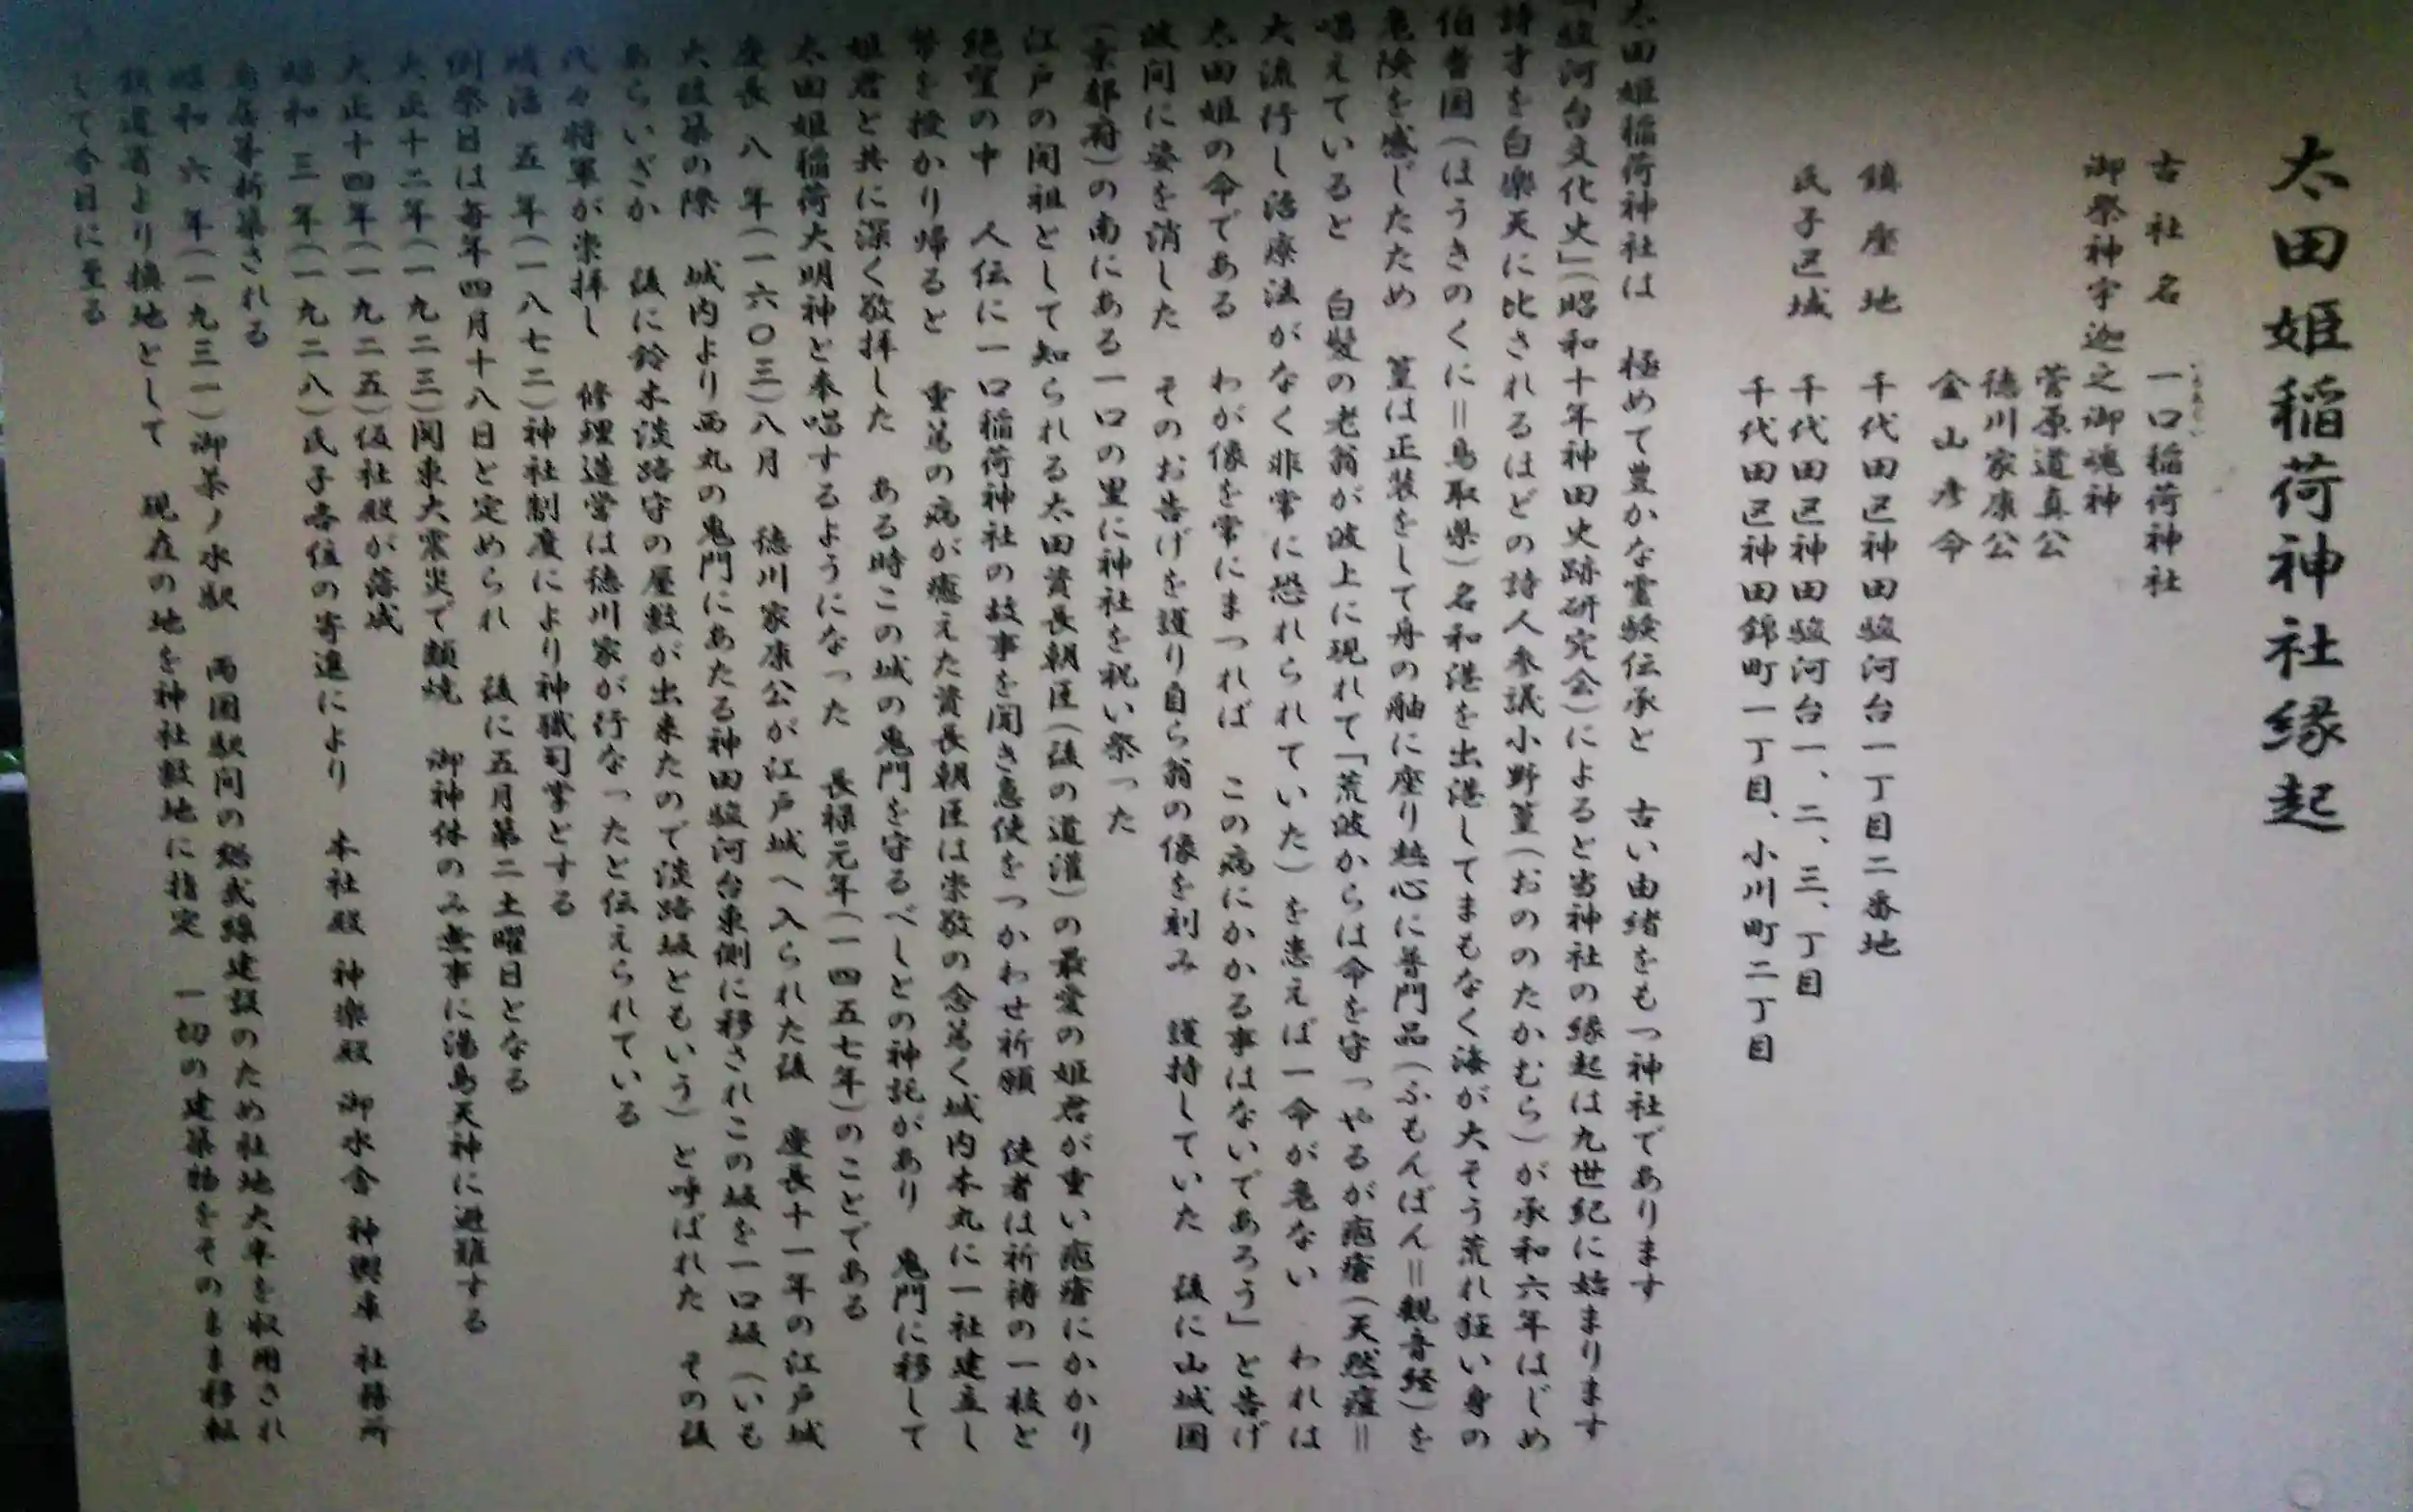 太田姫稲荷神社縁起
古社名 一口稲荷神社
いもあらい
御祭神 宇迦之御魂神
菅原道真公
徳川家康公
金山彦命
鎮座地 千代田区神田駿河台一丁目二番地
氏子区域 千代田区神田駿河台一、二、三、丁目
千代田区神田錦町一丁目、小川町二丁目
太田姫稲荷神社は 極めて豊かな霊験伝承と 古い由緒をもつ神社であります
「駿河台文化史」(昭和十年神田史跡研究会)によると当神社の縁起は九世紀に始まります
詩才を白楽天に比されるほどの詩人参議小野篁(おののたかむら)が承和六年はじめ
伯耆国(ほうきのくに=鳥取県)名和港を出港してまもなく海が大そう荒れ狂い身の
危険を感じたため 篁は正装をして舟の舳に座り熱心に普門品(ふもんぼん=観音経)を
唱えていると 白髪の老翁が波上に現れて「荒波からは命を守つやるが疱瘡(天然痘=
大流行し治療法がなく非常に恐れられていた)を患えば一命が危ない われは
太田姫の命である わが像を常にまつれば この病にかかる事はないであろう」と告げ
波間に姿を消した そのお告げを護り自ら翁の像を刻み 護持していた 後に山城国
(京都府)の南にある一口の里に神社を祝い祭った
江戸の開祖として知られる太田資長朝臣(後の道灌)の最愛の姫君が重い疱瘡にかかり
絶望の中 人伝に一口稲荷神社の故事を聞き急使をつかわせ祈願 使者は祈祷の一枝と
幣を授かり帰ると 重篤の病が癒えた資長朝臣は崇敬の念篤く城内本丸に一社建立し
姫君と共に深く敬拝した ある時この城の鬼門を守るべしとの神託があり 鬼門に移して
太田姫稲荷大明神と奉唱するようになった 長禄元年(一四五七年)のことである
慶長 八 年(一六〇三)八月 徳川家康公が江戸城へ入られた後 慶長十一年の江戸城
大改築の際 城内より西丸の鬼門にあたる神田駿河台東側に移されこの坂を一口坂(いも
あらいざか 後に鈴木淡路守の屋敷が出来たので淡路坂ともいう)と呼ばれた その後
代々将軍が崇拝し 修理造営は徳川家が行なったと伝えられている
明治 五 年(一八七二)神社制度により神職司掌とする
例祭日は毎年四月十八日と定められ 後に五月第二土曜日となる
大正十二年(一九二三)関東大震災で類焼 御神体のみ無事に湯島天神に避難する
大正十四年(一九二五)仮社殿が落成
昭和 三 年(一九二八)氏子各位の寄進により 本社殿 神楽殿 御水舎 神輿庫 社務所
鳥居等新築される
昭和 六 年(一九三一)御茶ノ水駅 両国駅間の総武線建設のため社地大半を収用され
鉄道省より換地として 現在の地を神社敷地に指定 一切の建築物をそのまま移転
して今日に至る